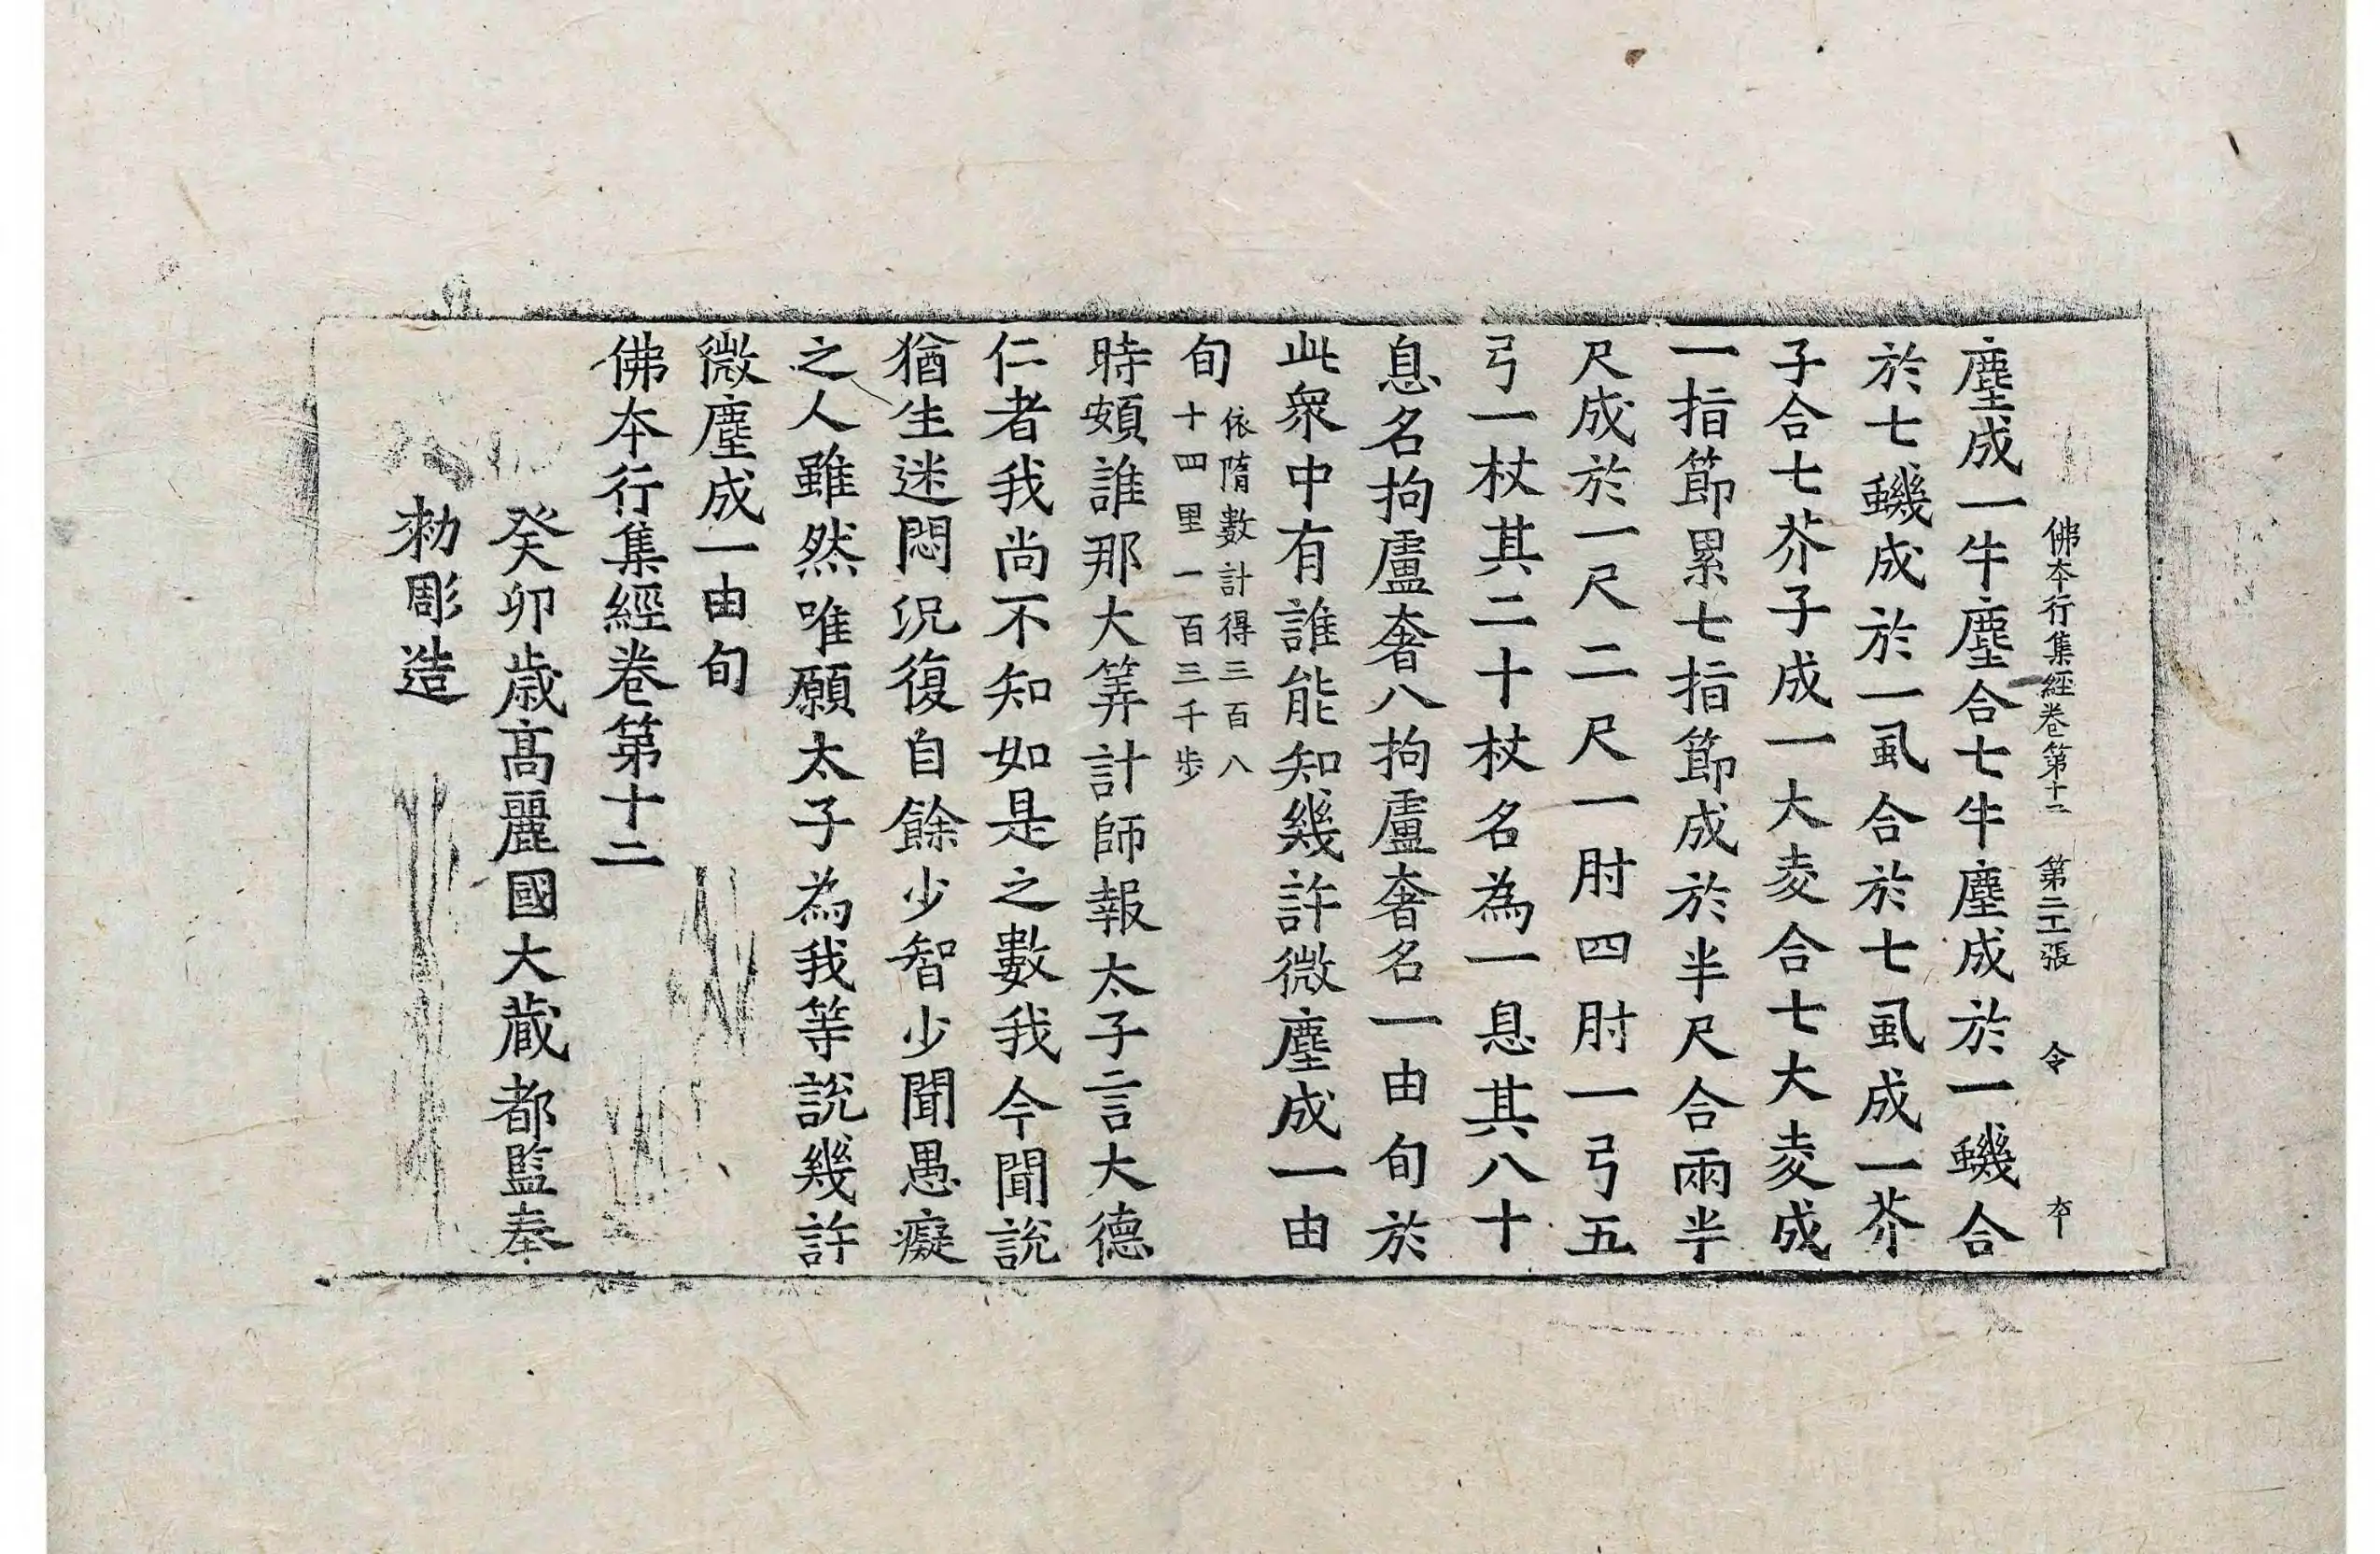 佛本行集經卷第十二 第二十張 令 本
塵成一牛塵合七牛塵成於一蟣合
於七蟣成於一虱合於七虱成一芥
子合七芥子成一大麦合七大麦成
一指節累七指節成於半尺合兩半
尺成於一尺二尺一肘四肘一弓五
弓一杖其二十杖名為一息其八十
息名拘盧奢八拘盧奢名一由旬於
此衆中有誰能知幾許微塵成一由
旬 依隋數計得三百八
十四里一百三千步
時頞誰那大筭計師報太子言大德
仁者我尚不知如是之數我今聞說
猶生迷悶況復自餘少智少聞愚癡
之人雖然唯願太子為我等說幾許
微塵成一由旬
佛本行集經卷第十二
癸卯歲高麗國大藏都監奉
勑彫造